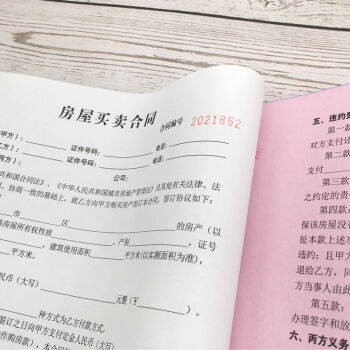 房屋买卖合同
合同编号 2021852
甲方）： 证件号码： 电话：
方）： 证件号码： 电话：
公司：
共和国合同法》、《中华人民共和国城市房地产管理法》及其他有关法律、法
、协商一致的基础上，就乙方向甲方购买房产签订本合同，签订协议如下：
市 区 的房产（以
该房屋所有权性质 ，产别 ，证号
，建筑使用面积 平方米（以实测面积为准），
平方米。
民币（大写）
元整（￥
种方式为乙方付款方式。
签订之日向甲方支付定金人民币（大写）
作购房款），本合同
五、违约责
第一款
对方支付违
第二款
支付
第三款
之约定的责
第四款
保该房屋没有
扯本款上述事
违约；且甲方
退给乙方，同
方当事人由此
第五款：
办理签字和放
六、丙方义务